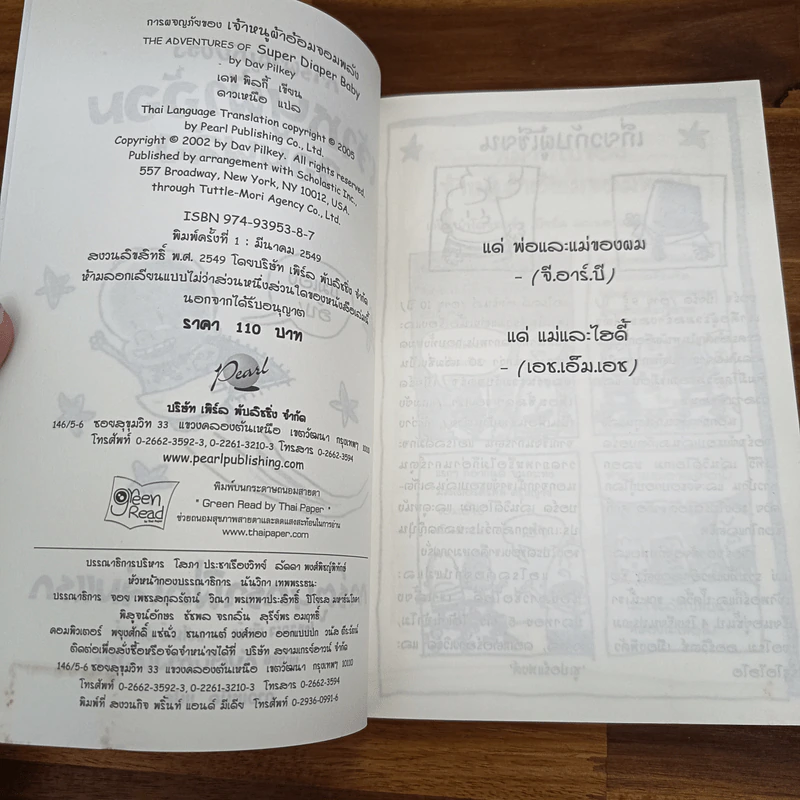 การผจญภัยของ เจ้าหนูผ้าอ้อมจอมพลัง
THE ADVENTURES OF Super Diaper Baby
by Dav Pilkey
เดฟ พิลกี้ เขียน
ดาวเหนือ แปล
Thai Language Translation copyright © 2005
by Pearl Publishing Co., Ltd.
Copyright © 2002 by Dav Pilkey. All rights reserved.
Published by arrangement with Scholastic Inc.,
557 Broadway, New York, NY 10012, USA.
through Tuttle-Mori Agency Co., Ltd.
ISBN 974-93953-8-7
พิมพ์ครั้งที่ 1 : มีนาคม 2549
สงวนลิขสิทธิ์ พ.ศ. 2549 โดยบริษัท เพิร์ล พับลิชชิ่ง จำกัด
ห้ามลอกเลียนแบบไม่ว่าส่วนหนึ่งส่วนใดของหนังสือเล่มนี้
นอกจากได้รับอนุญาต
ราคา 110 บาท
Pearl
บริษัท เพิร์ล พับลิชชิ่ง จำกัด
146/5-6 ซอยสุขุมวิท 33 แขวงคลองตันเหนือ เขตวัฒนา กรุงเทพฯ 10110
โทรศัพท์ 0-2662-3592-3, 0-2261-3210-3 โทรสาร 0-2662-3594
www.pearlpublishing.com
green Read
by Thai Paper
พิมพ์บนกระดาษถนอมสายตา
" Green Read by Thai Paper "
ช่วยถนอมสุขภาพสายตาและลดแสงสะท้อนในการอ่าน
www.thaipaper.com
บรรณาธิการบริหาร โสภา ประชาเรืองวิทย์ ลัดดา พงศ์พิชญ์พิทักษ์
หัวหน้ากองบรรณาธิการ นันวิกา เทพพรรธนะ
บรรณาธิการ จอย เพชรสกุลรัตน์ วีณา พรเทพาประสิทธิ์ ปิโยรส มหาชันโลหา
พิสูจน์อักษร ชัชพล จรกลั่น สุรีย์พร อมฤทธิ์
คอมพิวเตอร์ พยุงศักดิ์ แซ่นิ้ว ชนกานต์ วงศ์ทอง ออกแบบปก วนัส ดีรรัตน์
ติดต่อเพื่อสั่งซื้อหรือจัดจำหน่ายได้ที่ บริษัท สยามเกรย์ฮาวน์ จำกัด
146/5-6 ซอยสุขุมวิท 33 แขวงคลองตันเหนือ เขตวัฒนา กรุงเทพฯ 10110
โทรศัพท์ 0-2662-3592-3, 0-2261-3210-3 โทรสาร 0-2662-3594
พิมพ์ที่ สงวนกิจ พริ้นท์ แอนด์ มีเดีย โทรศัพท์ 0-2936-0991-6
แด่ พ่อและแม่ของผม
- (จี.อาร์.บี)
แด่ แม่และไฮดี้
- (เอช.เอ็ม.เอช)